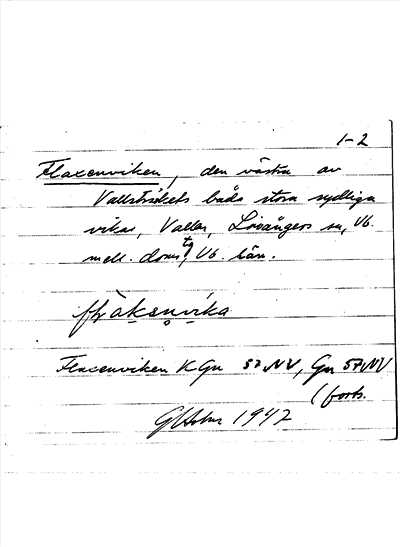 1-2
Flaxenviken, den västra av
Vallsträskets båda stora sydliga
vikar, Vallen, Lövångers sn, Vb.
mell. doms tg, Vb. län.
fḷàkenvíka
Flaxenviken K Gn 57 NV, Gn 57 NV
(forts.
1942